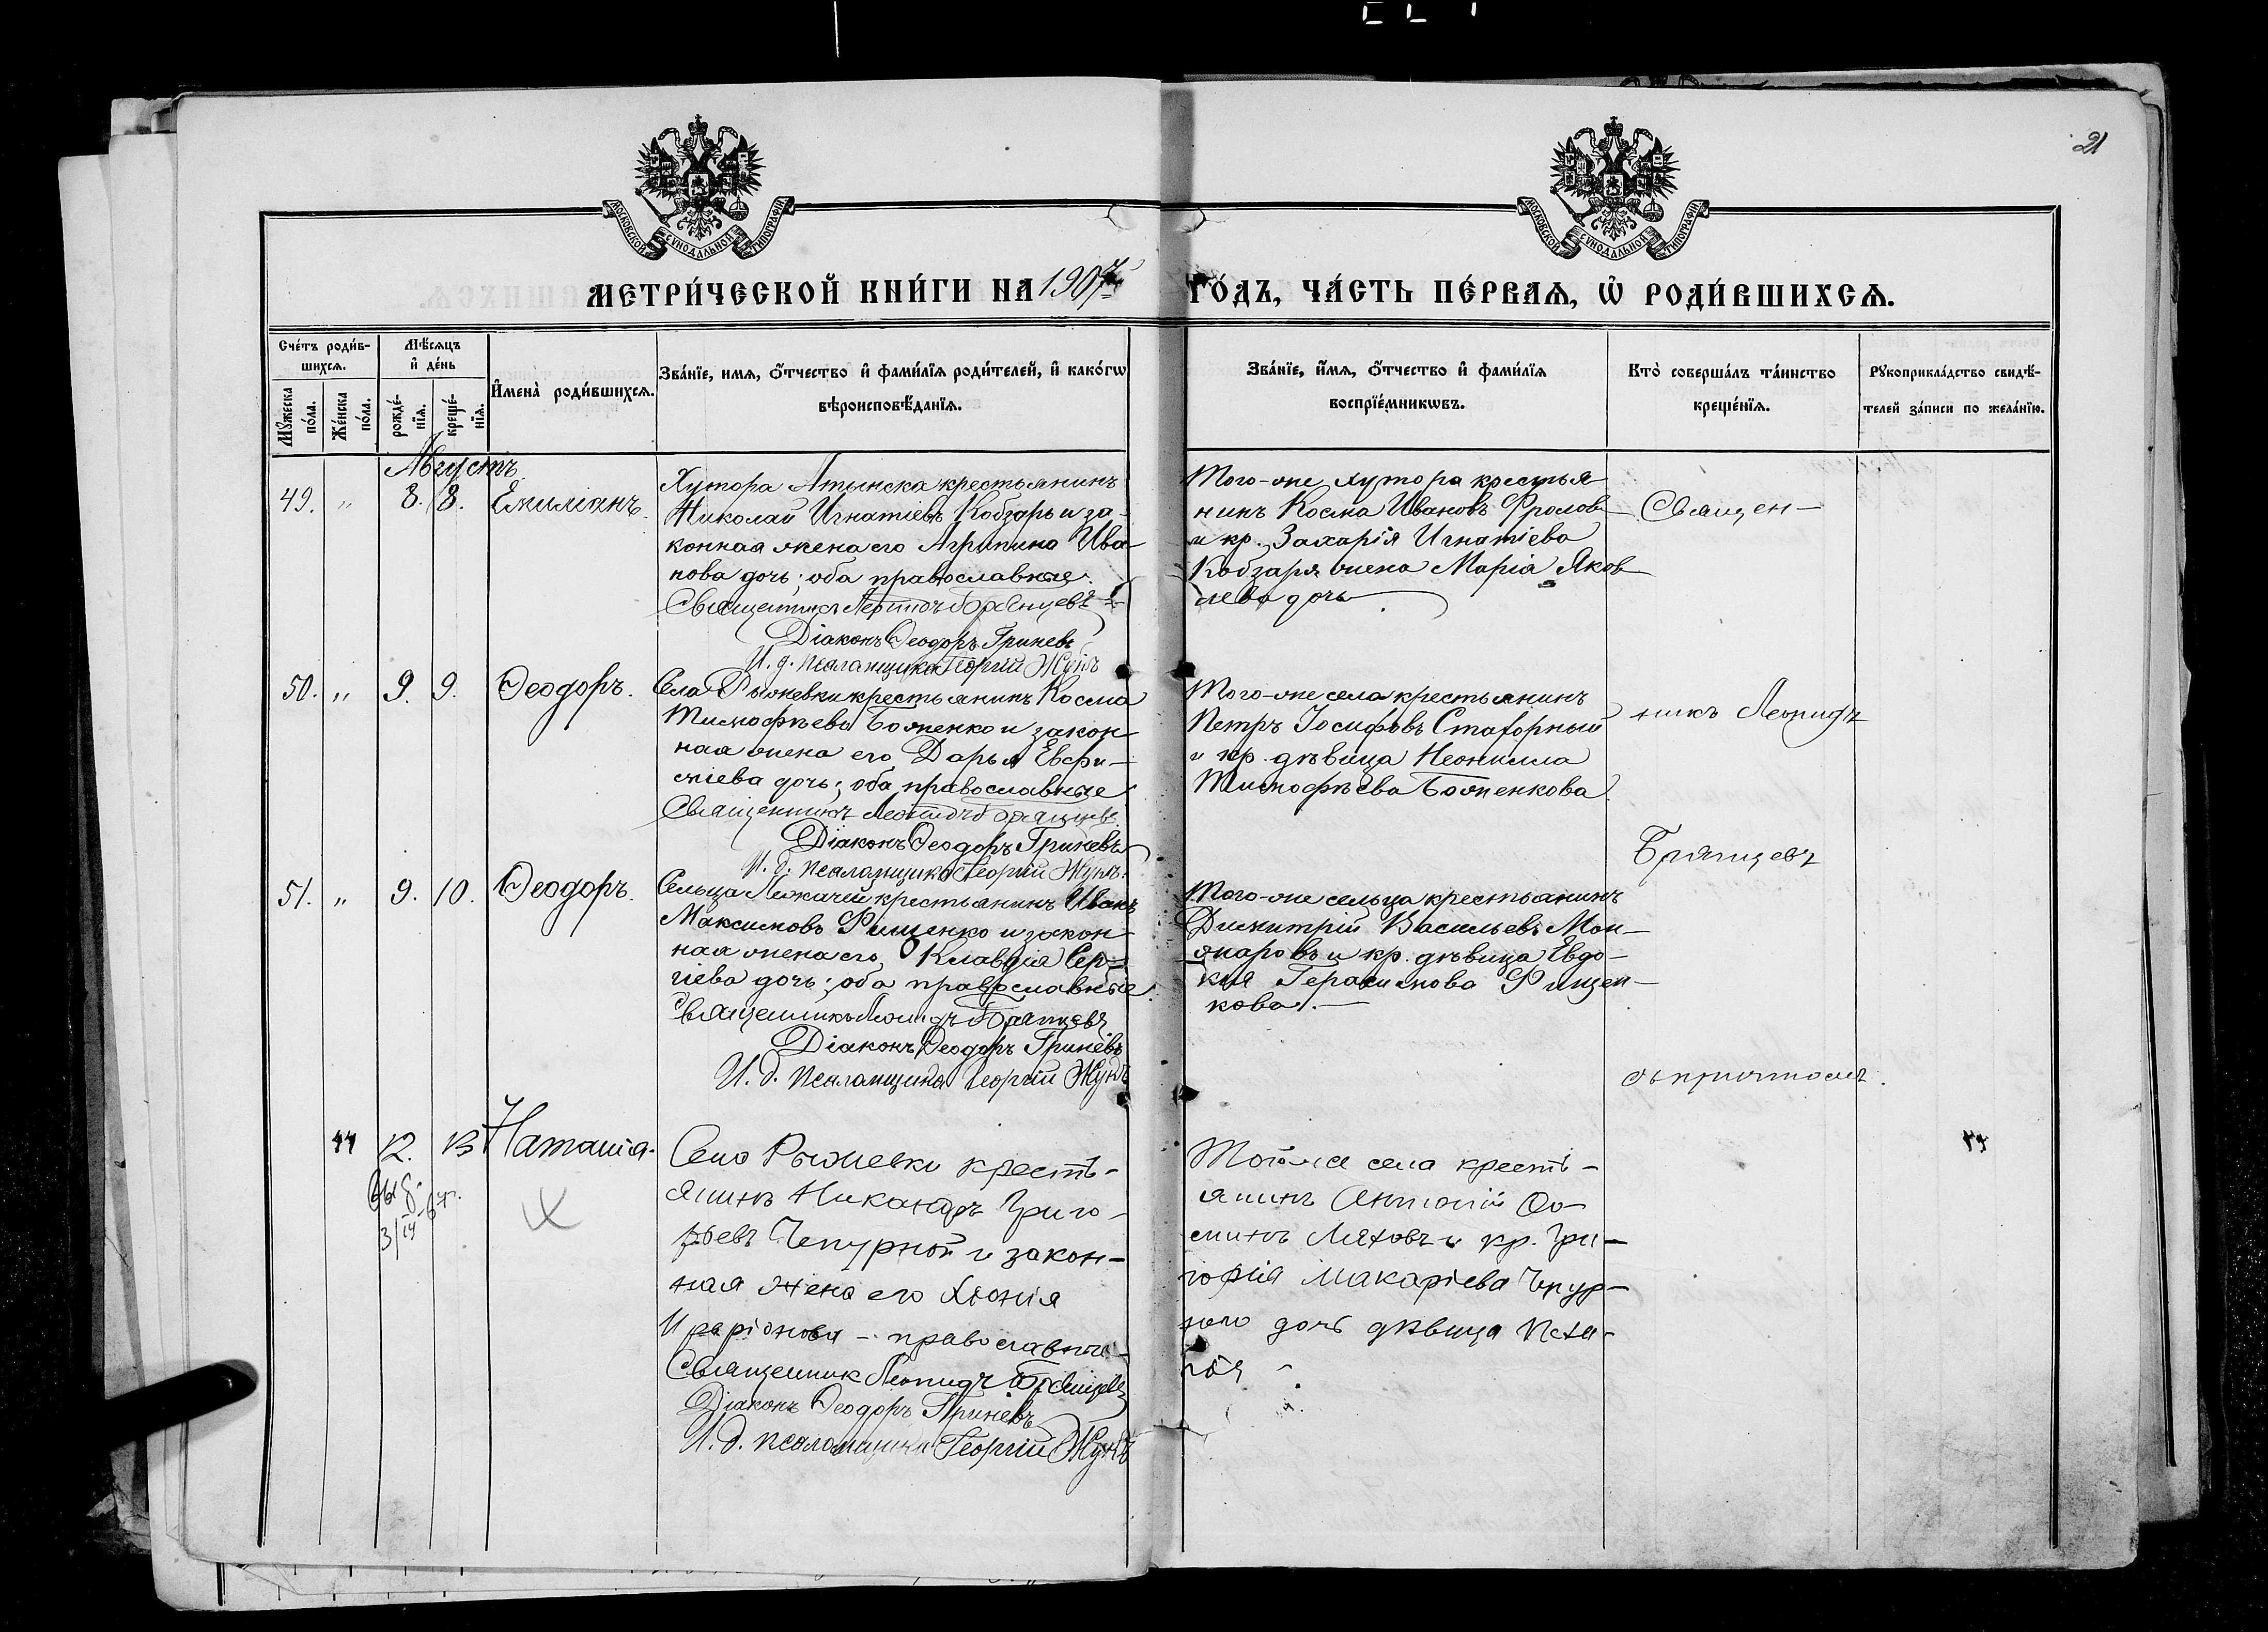 21
МОСКОВСКОЙ СѴНОДАЛЬНОЙ ТИПОГРАФІИ
МОСКОВСКОЙ СѴНОДАЛЬНОЙ ТИПОГРАФІИ
МЕТРИ́ЧЕСКОЙ КНИ́ГИ НА 1907й ГО́ДЪ, ЧА́СТЬ ПЕ́РВАѦ, Ѡ҆ РОДИ́ВШИХСѦ.
Сче́тъ роди́в-
шихсѧ.
Мꙋ́жеска по́ла.
Же́нска по́ла.
Мѣ́сѧцъ и҆ де́нь
рожде́-
нїѧ.
креще́-
нїѧ.
И҆мена̀ роди́вшихсѧ.
Зва́нїе, имѧ, ѻ҆́тчество и҆ фами́лїѧ роди́телей, и҆ како́гѡ
вѣроисповѣ́данїѧ.
Зва́нїе, и҆́мѧ, ѻ҆́тчество и҆ фами́лїѧ
воспрїе́мникѡвъ.
Кто̀ соверша́лъ та́инство
креще́нїѧ.
Рꙋкоприкла́дство свидѣ́-
телей за́писи по жела́нїю.
Августъ
49. „ 8. 8. Емиліанъ.
Хутора Атынска крестьянинъ
Николай Игнатіевъ Кобзарь и за-
конная жена его Агрипина Ива-
нова дочь; оба православные.
Священникъ Леонидъ Брянцевъ
Діаконъ Ѳеодоръ Гриневъ
И. д. псаломщика Георгій Жукъ
Того-же хутора крестья
нинъ Косма Ивановъ Фролов
и кр. Захарія Игнатіева
Кобзаря жена Марія Яков
лева дочь
Священ-
50. „ 9. 9. Ѳеодоръ.
Села Рыжевки крестьянинъ Косма
Тимофѣевъ Боженко и закон-
ная жена его Дарья Евфи-
міева дочь; оба православные
Священникъ Леонидъ Брянцевъ.
Діаконъ Ѳеодоръ Гриневъ
И. д. псаломщика Георгій Жукъ.
Того-же села крестьянинъ
Петръ Іосифовъ Стахорный
и кр. дѣвица Неонилла
Тимофѣева Боженкова.
никъ Леонидъ
Брянцевъ
51. „ 9. 10. Ѳеодоръ.
Сельца Лежачи крестьянинъ Иванъ
Максимовъ Фищенко и закон-
ная жена его Клавдія Сер-
гіева дочь; оба православные.
Священникъ Леонидъ Брянцевъ
Діаконъ Ѳеодоръ Гриневъ
И. д. псаломщика Георгій Жукъ
Того-же сельца крестьянинъ
Димитрій Васильевъ Мон-
жаровъ и кр. дѣвица Евдо-
кія Герасимова Фищен-
кова.
съ причтомъ.
44 12. 13 Наталія.
выд.
3/IX
Село Рыжевки кресть-
янинъ Никандръ Григо-
рьевъ Чепурной и закон-
ная жена его Хіонія
Иларіонова - православные
Священник Леонидъ Брянцевъ
Діаконъ Ѳеодоръ Гриневъ
И. д. псаломщика Георгій Жукъ
Тогоже села кресть-
янинъ Антоній Ѳо-
минъ Ляховъ и кр. Гри-
горія Макаріева Чепур-
ного дочь дѣвица Пела-
гія
44